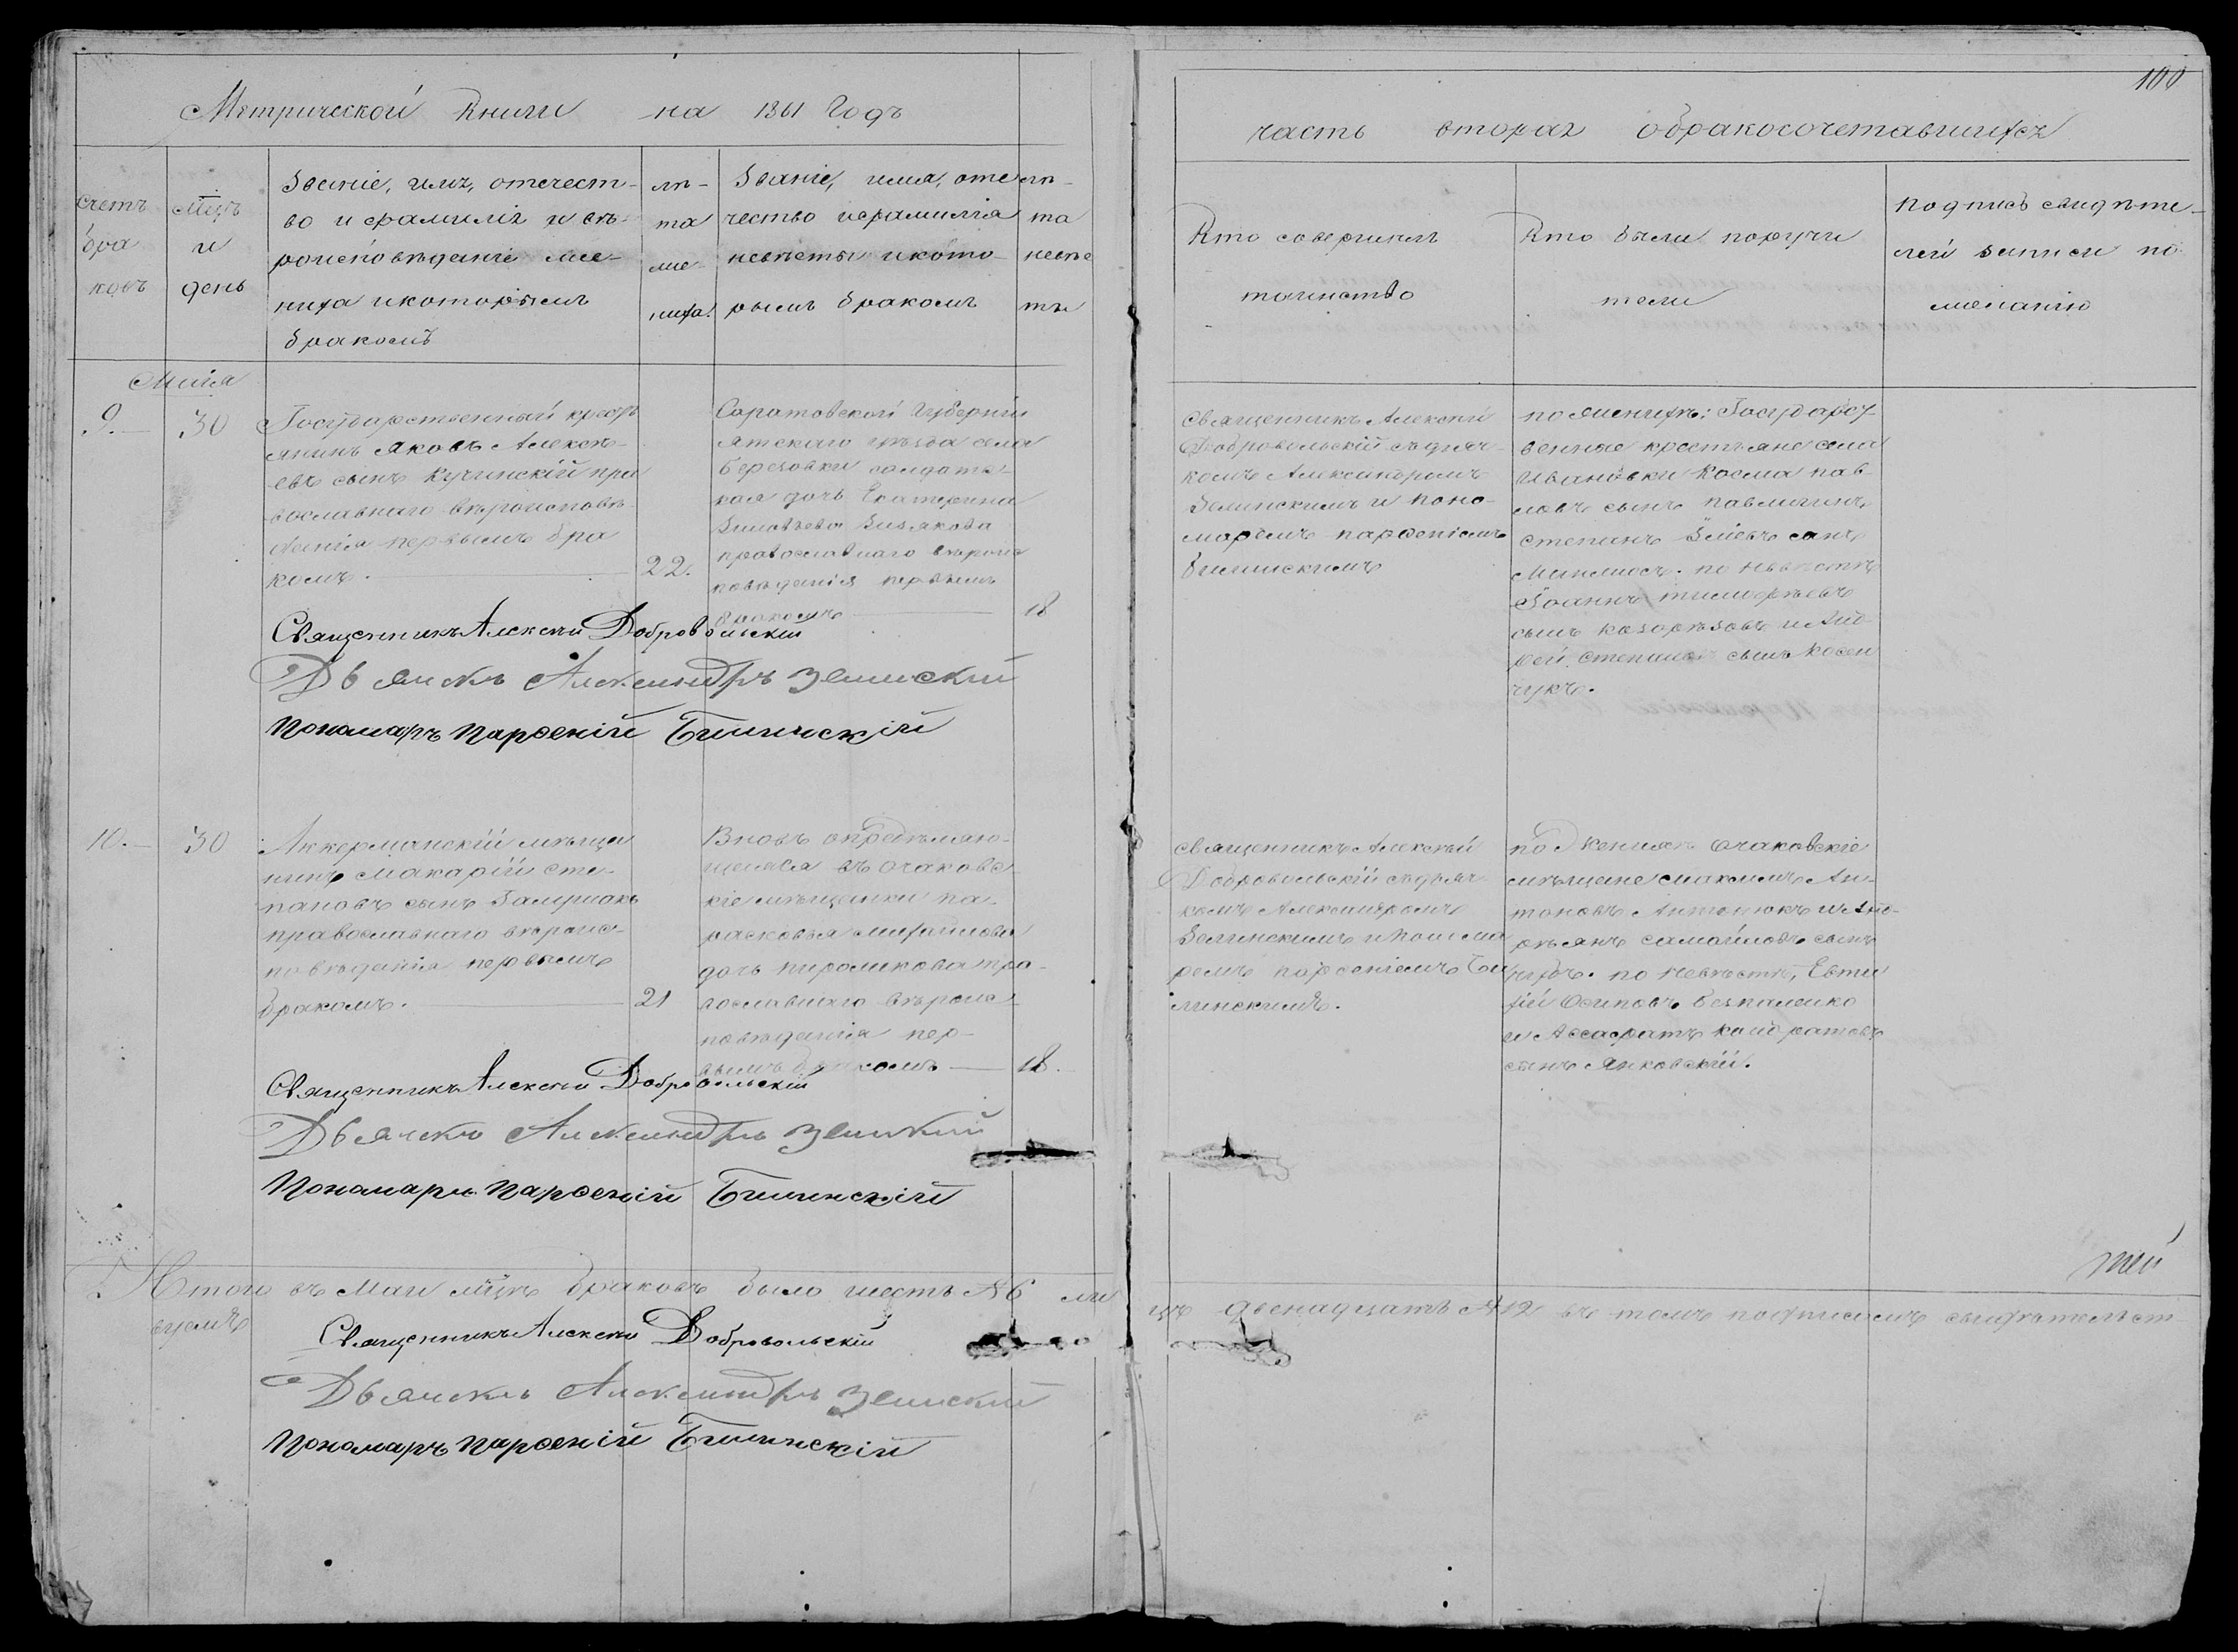 Метрической Книги на 1861 Годъ
счетъ
бра
ковъ
мцъ
и
день
Званіе, имя, отечест-
во и фамилія и вѣ-
роисповѣданіе же-
ниха и которымъ
бракомъ
лѣ-
та
же-
ниха.
Званіе, имя, оте
чество и фамилія
невѣсты и кото-
рымъ бракомъ
лѣ-
та
невѣс
ты
100
часть вторая о бракосочетавшихся
Кто совершилъ
таинство
Кто были поручи
тели
Подпись свидѣте-
лей записи по
желанію
Мая
9. 30
Государственный крестъ
янинъ Яковъ Алексѣ-
евъ сынъ Кучинскій пра
вославнаго вѣроисповѣ
денія первымъ бра
комъ. 22.
Саратовской Губерніи
уѣзда села
Березовки солдатс-
кая дочь Екатерина
православнаго вѣроис
повѣданія первымъ
бракомъ 18
Священникъ Алексѣй
Добровольскій съ дьяч-
комъ Александромъ
Зелинскимъ и поно-
маремъ Парѳеніемъ
Билинскимъ
по женихѣ: Государст
венные крестьяне села
Ивановки Косма Пав-
ловъ сынъ
Степанъ сынъ
по невѣстѣ
Іоаннъ Тимофѣевъ
сынъ Козорѣзовъ и Анд-
рей Степановъ сынъ Косен
чукъ.
Священникъ Алексѣй Добровольскій
Дьячекъ Александръ Зелинскій
Пономарь Парѳеній Билинскій
10. 30
Аккерманскій мѣща
нинъ Макарій Сте-
пановъ сынъ
православнаго вѣроис-
повѣданія первымъ
бракомъ. 21
Вновь опредѣляю-
щейся въ Очаковс-
кіе мѣщанки Па-
расковья Михайлова
дочь пра-
вославнаго вѣроис
повѣданія пер-
вымъ бракомъ 18.
Священникъ Алексѣй
Добровольскій съ дьяч-
комъ Александромъ
Зелинскимъ и понома
ремъ Парѳеніемъ Би
линскимъ.
по женихѣ Очаковскіе
мѣщане Максимъ Ан-
тоновъ Антонюкъ и
Самойловъ сынъ
по невѣстѣ, Евти
хій Осиповъ Безпаленко
и Кондратовъ
сынъ Янковскій.
Священникъ Алексѣй Добровольскій
Дьячекъ Александръ Зелинскій
Пономарь Парѳеній Билинскій
Итого въ Маи мцѣ браковъ было шесть №6 ли цъ двенадцать №12 въ томъ подписомъ свидѣтельст
вуемъ
Священникъ Алексѣй Добровольскій
Дьячекъ Александръ Зелинскій
Пономарь Парѳеній Билинскій